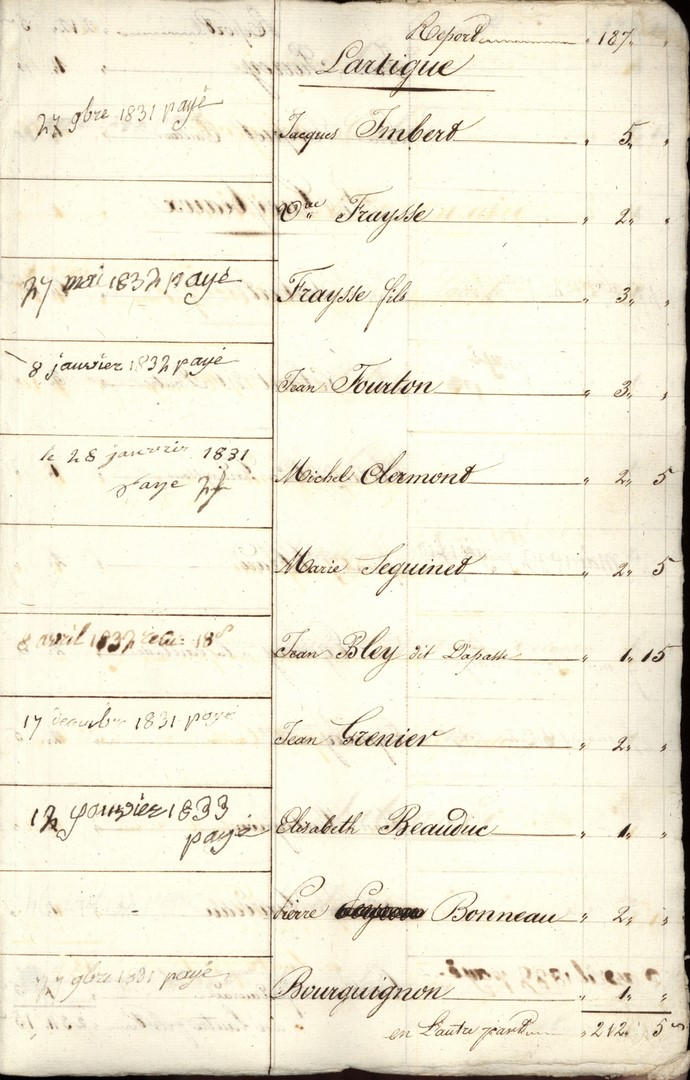 Report „ 187 „ „
Lartigue
27 9bre 1831 payé Jacques Imbert „ 5 „ „
Vve Fraysse „ 2 „ „
27 mai 1832 payé Fraysse fils „ 3 „ „
8 janvier 1832 payé Jean Tourton „ 3 „ „
le 28 janvier 1831
payé Michel Clermont „ 2 „ 5
Marie Seguinet „ 2 „ 5
8 avril 1832 Jean Bley dit Dapasse „ 1 „ 15
17 decembre 1831 payé Jean Grenier „ 2 „ „
12 janvier 1833
payé Elisabeth Beauduc „ 1 „ „
Pierre Bonneau „ 2 „ „
27 9bre 1831 payé Bourguignon „ 1 „ „
en L'autre part „ 212 „ 5